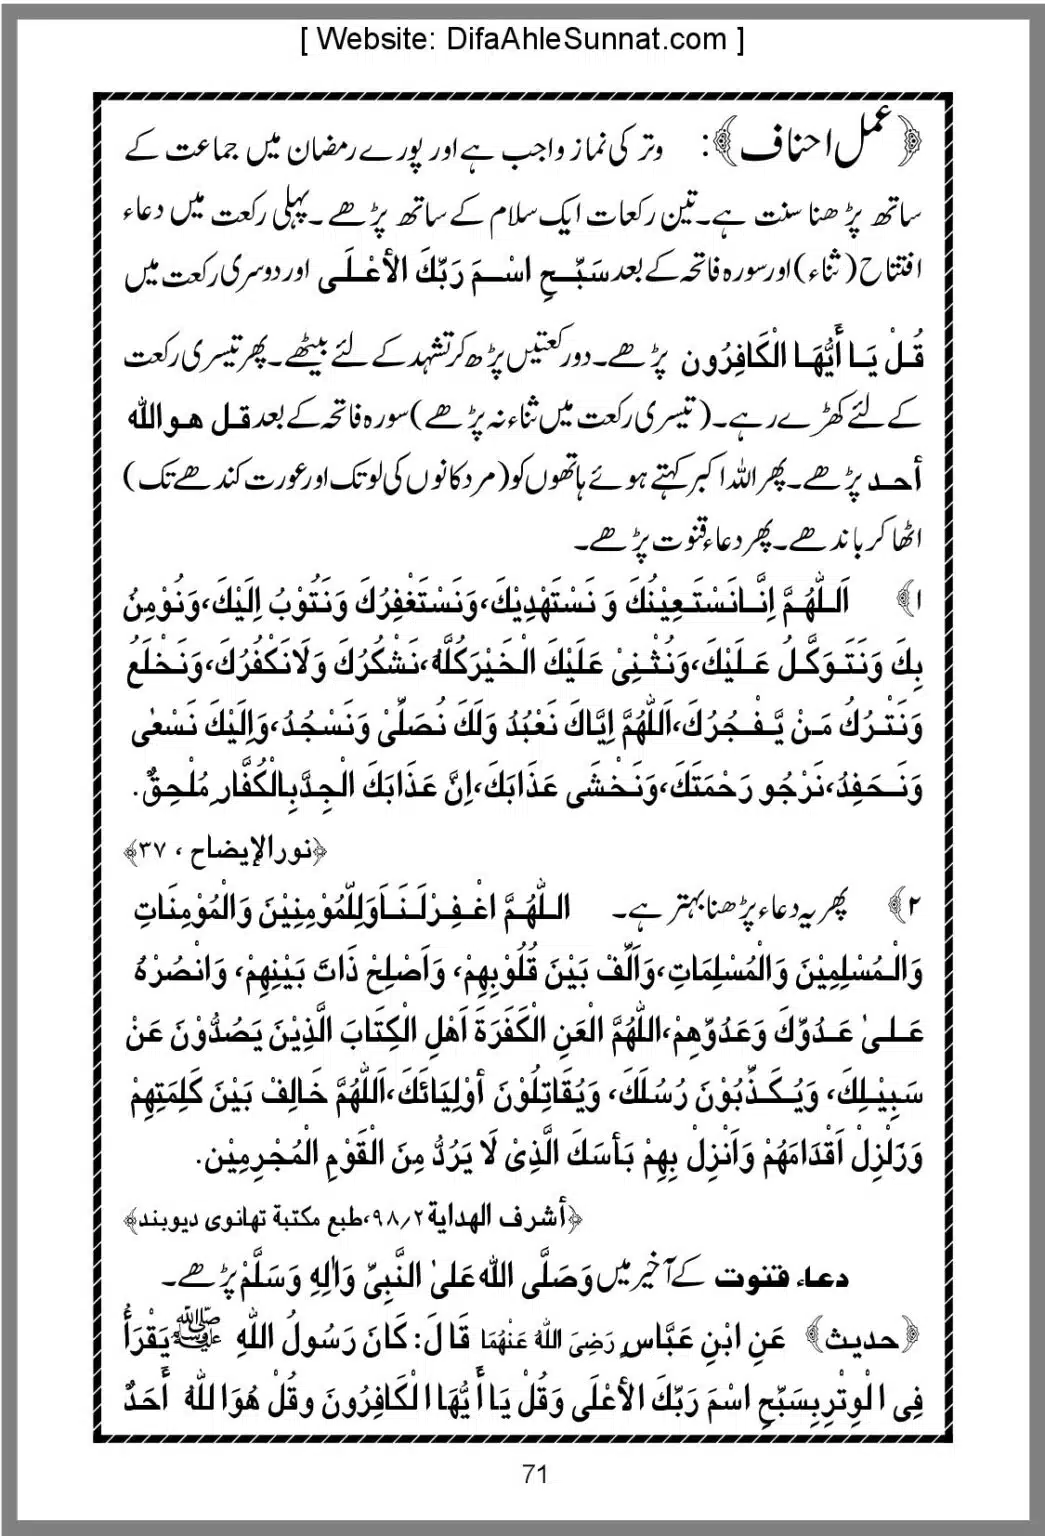 [ Website: DifaAhleSunnat.com ]
﴿عمل احناف﴾: وتر کی نماز واجب ہے اور پورے رمضان میں جماعت کے
ساتھ پڑھنا سنت ہے۔ تین رکعات ایک سلام کے ساتھ پڑھے۔ پہلی رکعت میں دعاء
افتتاح (ثناء) اور سورہ فاتحہ کے بعد سَبِّحِ اسْمَ رَبِّكَ الأعْلَى اور دوسری رکعت میں
قُلْ يَا أَيُّهَا الْكَافِرُون پڑھے۔ دو رکعتیں پڑھ کر تشہد کے لئے بیٹھے۔ پھر تیسری رکعت
کے لئے کھڑے رہے۔ (تیسری رکعت میں ثناء نہ پڑھے) سورہ فاتحہ کے بعد قل هو الله
أحد پڑھے۔ پھر اللہ اکبر کہتے ہوئے ہاتھوں کو (مرد کانوں کی لو تک اور عورت کندھے تک)
اٹھا کر باندھے۔ پھر دعاء قنوت پڑھے۔
۱﴾ اَللّٰهُمَّ اِنَّا نَسْتَعِيْنُكَ وَ نَسْتَهْدِيْكَ، وَنَسْتَغْفِرُكَ وَنَتُوْبُ اِلَيْكَ، وَنُوْمِنُ
بِكَ وَنَتَوَكَّلُ عَلَيْكَ، وَنُثْنِىْ عَلَيْكَ الْخَيْرَ كُلَّهُ، نَشْكُرُكَ وَلَانَكْفُرُكَ، وَنَخْلَعُ
وَنَتْرُكُ مَنْ يَّفْجُرُكَ، اَللّٰهُمَّ اِيَّاكَ نَعْبُدُ وَلَكَ نُصَلِّىْ وَنَسْجُدُ، وَاِلَيْكَ نَسْعٰى
وَنَحَفِدُ، نَرْجُو رَحْمَتَكَ، وَنَخْشَى عَذَابَكَ، اِنَّ عَذَابَكَ الْجِدَّ بِالْكُفَّارِ مُلْحِقٌ.
﴿نور الإيضاح ، ۳۷﴾
۲﴾ پھر یہ دعاء پڑھنا بہتر ہے۔ اللّٰهُمَّ اغْفِرْلَنَا وَلِلْمُوْمِنِيْنَ وَالْمُوْمِنَاتِ
وَالْمُسْلِمِيْنَ وَالْمُسْلِمَاتِ، وَاَلِّفْ بَيْنَ قُلُوْبِهِمْ، وَاَصْلِحْ ذَاتَ بَيْنِهِمْ، وَانْصُرْهُ
عَلىٰ عَدُوِّكَ وَعَدُوِّهِمْ، اللّٰهُمَّ الْعَنِ الْكَفَرَةَ اَهْلِ الْكِتَابَ الَّذِيْنَ يَصُدُّوْنَ عَنْ
سَبِيْلِكَ، وَيُكَذِّبُوْنَ رُسُلَكَ، وَيُقَاتِلُوْنَ أوْلِيَائَكَ، اَللّٰهُمَّ خَالِفْ بَيْنَ كَلِمَتِهِمْ
وَزَلْزِلْ اَقْدَامَهُمْ وَاَنْزِلْ بِهِمْ بَأسَكَ الَّذِىْ لَا يَرُدُّ مِنَ الْقَوْمِ الْمُجْرِمِيْن.
﴿أشرف الهداية ۲/۹۸، طبع مكتبة تهانوى ديوبند﴾
دعاء قنوت کے آخیر میں وَصَلَّى اللّٰه عَلىٰ النَّبِىِّ وَاٰلِهٖ وَسَلَّمْ پڑھے۔
﴿حدیث﴾ عَنِ ابْنِ عَبَّاسٍ رَضِىَ اللّٰهُ عَنْهُمَا قَالَ: كَانَ رَسُولُ اللّٰهِ ﷺ يَقْرَأُ
فِى الْوِتْرِ بِسَبِّحِ اسْمَ رَبِّكَ الأعْلَى وَقُلْ يَا أَيُّهَا الْكَافِرُونَ وقُلْ هُوَ اللّٰهُ أَحَدٌ
71